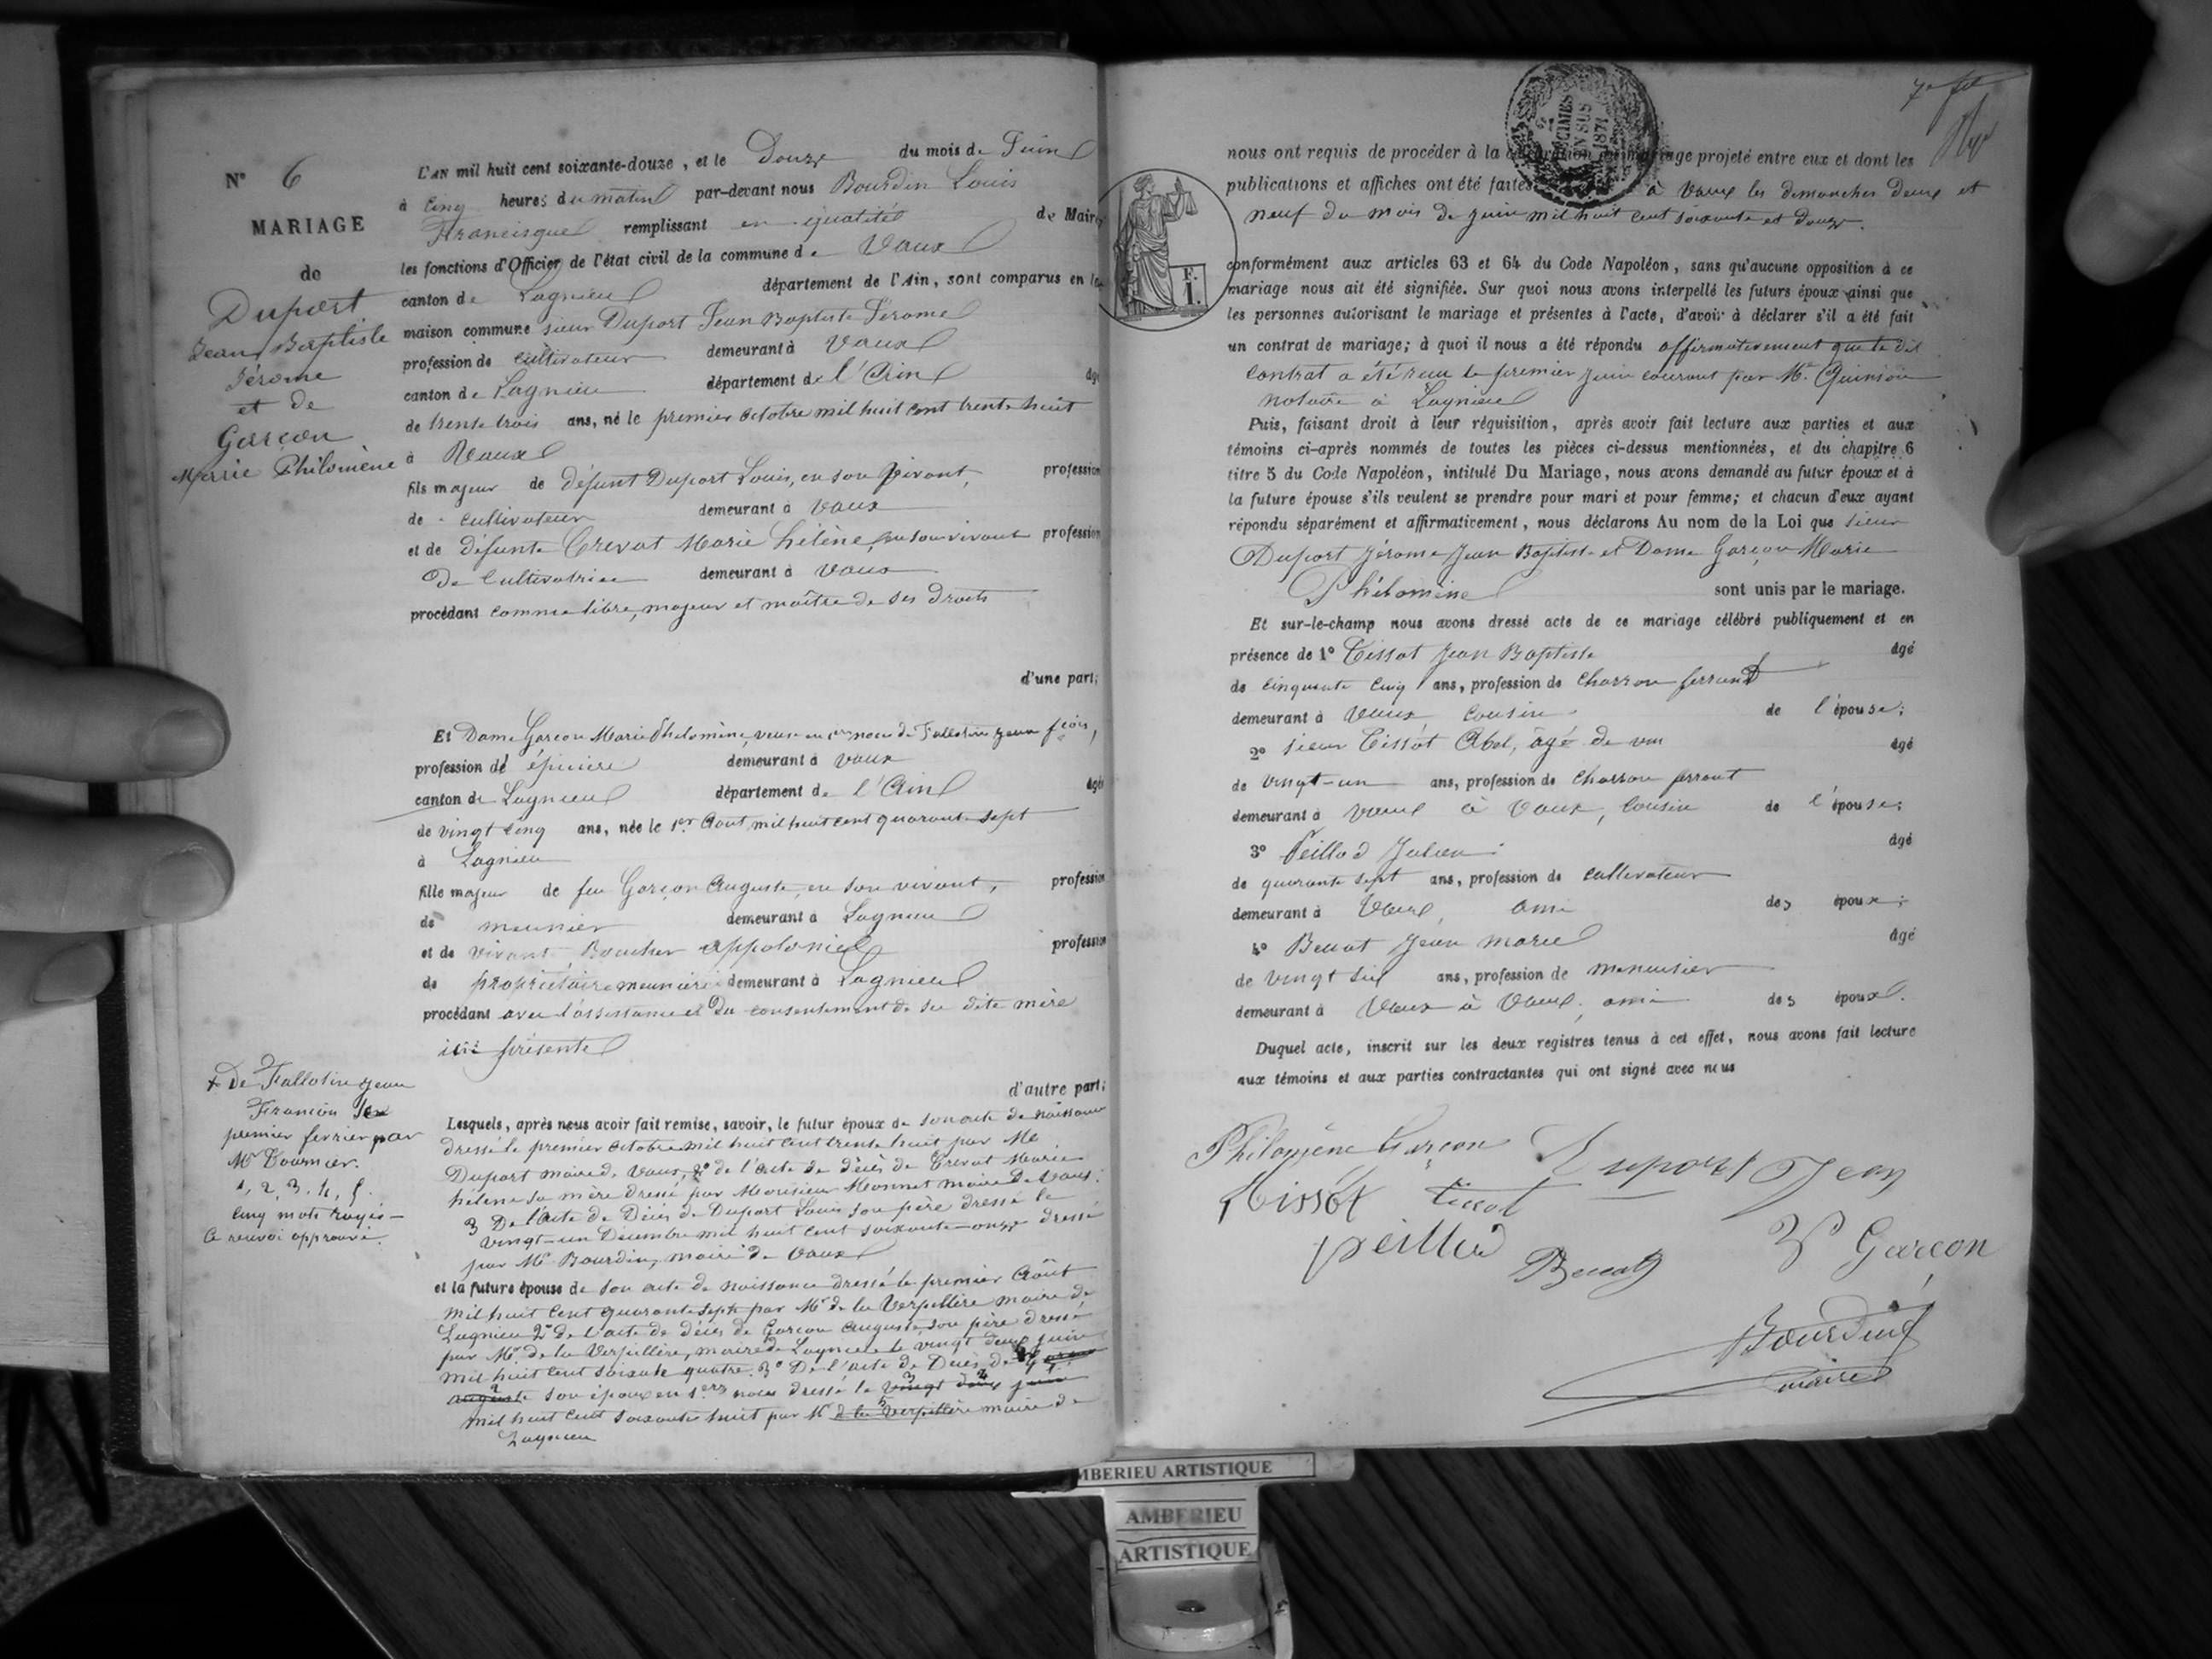 N° 6
MARIAGE
de
Duport
Jean Baptiste
Jérome
et de
Garcon
Marie Philomène
L'AN mil huit cent soixante-douze, et le Douze du mois de Juin
à cinq heures du matin par-devant nous Bourdin Louis
Francisque remplissant en qualité de Maire
les fonctions d'Officier de l'état civil de la commune de Vaux
canton de Lagnieu département de l'Ain, sont comparus en la
maison commune sieur Duport Jean Baptiste Jérome
profession de cultivateur demeurant à Vaux
canton de Lagnieu département de l'Ain âgé
de trente trois ans, né le premier octobre mil huit cent trente huit
à Vaux
fils majeur de défunt Duport Louis, en son vivant, profession
de cultivateur demeurant à Vaux
et de défunte Crevat Marie hélène, en son vivant profession
De Cultivatrice demeurant à Vaux
procédant comme libre, majeur et maître de ses droits
d'une part;
Et Dame Garcon Marie Philomène, veuve en 1res noces de Fallotin jean fcois,
profession de épicière demeurant à Vaux
canton de Lagnieu département de l'Ain âgée
de vingt cinq ans, née le 1er Aout mil huit cent quarante sept
à Lagnieu
fille majeur de feu Garçon Auguste, en son vivant, profession
de meunier demeurant à Lagnieu
et de vivant Boucher appolonie profession
de propriétaire meunière demeurant à Lagnieu
procédant avec l'assistance et Du consentement de sa dite mère
ici présente
d'autre part;
+ De Fallotin jean
François
premier fevrier par
Mr Tournier.
1, 2, 3, 4, 5.
Cinq mots rayés
Ce renvoi approuvé.
Lesquels, après nous avoir fait remise, savoir, le futur époux de son acte de naissance
dressé le premier octobre mil huit cent trente huit par Mr
Duport maire de Vaux, 2° de l'acte de décès de Crevat Marie
hélène sa mère dressé par Monsieur Monnet maire De Vaux.
3 De l'acte de Décès de Duport Louis son père dressé le
vingt-un Décembre mil huit cent soixante-onze dressé
par Mr Bourdin, maire de Vaux
et la future épouse de son acte de naissance dressé le premier Août
mil huit cent quarante sept par Mr de la Verpillère maire de
Lagnieu 2° de l'acte de décès de Garcon Auguste son père dressé
par Mr de la Verpillère, maire de Lagnieu le vingt deux juin
mil huit cent soixante quatre. 3° De l'acte de Decès de
auguste son époux en 1ers noces dressé le vingt deux juin
mil huit cent soixante huit par Mr de la Verpillère maire de
Lagnieu
nous ont requis de procéder à la célébration du mariage projeté entre eux et dont les
publications et affiches ont été faites à Vaux les dimanches deux et
neuf du mois de juin mil huit cent soixante et douze.
conformément aux articles 63 et 64 du Code Napoléon, sans qu'aucune opposition à ce
mariage nous ait été signifiée. Sur quoi nous avons interpellé les futurs époux ainsi que
les personnes autorisant le mariage et présentes à l'acte, d'avoir à déclarer s'il a été fait
un contrat de mariage; à quoi il nous a été répondu affirmativement que le dit
contrat a été reçu le premier juin courant par Me Quinson
notaire à Lagnieu
Puis, faisant droit à leur réquisition, après avoir fait lecture aux parties et aux
témoins ci-après nommés de toutes les pièces ci-dessus mentionnées, et du chapitre 6
titre 5 du Code Napoléon, intitulé Du Mariage, nous avons demandé au futur époux et à
la future épouse s'ils veulent se prendre pour mari et pour femme; et chacun d'eux ayant
répondu séparément et affirmativement, nous déclarons Au nom de la Loi que sieur
Duport Jérome Jean Baptiste et Dame Garçon Marie
Philomène sont unis par le mariage.
Et sur-le-champ nous avons dressé acte de ce mariage célébré publiquement et en
présence de 1° Tissot Jean Baptiste âgé
de cinquante cinq ans, profession de charron ferrand
demeurant à Vaux, cousin de l'épouse;
2° sieur Tissot Abel, âgé de vin âgé
de vingt-un ans, profession de charron ferrant
demeurant à Vaux à Vaux, Cousin de l'épouse;
3° Peillod Julien âgé
de quarante sept ans, profession de cultivateur
demeurant à Vaux, ami des époux;
4° Benoat Jean marie âgé
de vingt six ans, profession de menuisier
demeurant à Vaux à Vaux, ami des époux.
Duquel acte, inscrit sur les deux registres tenus à cet effet, nous avons fait lecture
aux témoins et aux parties contractantes qui ont signé avec nous
Philomène Garçon Duport Jean
Tissot Tissot
peillod Garcon
Bourdin
maire
F.
1.
1871
AMBERIEU ARTISTIQUE
AMBERIEU
ARTISTIQUE